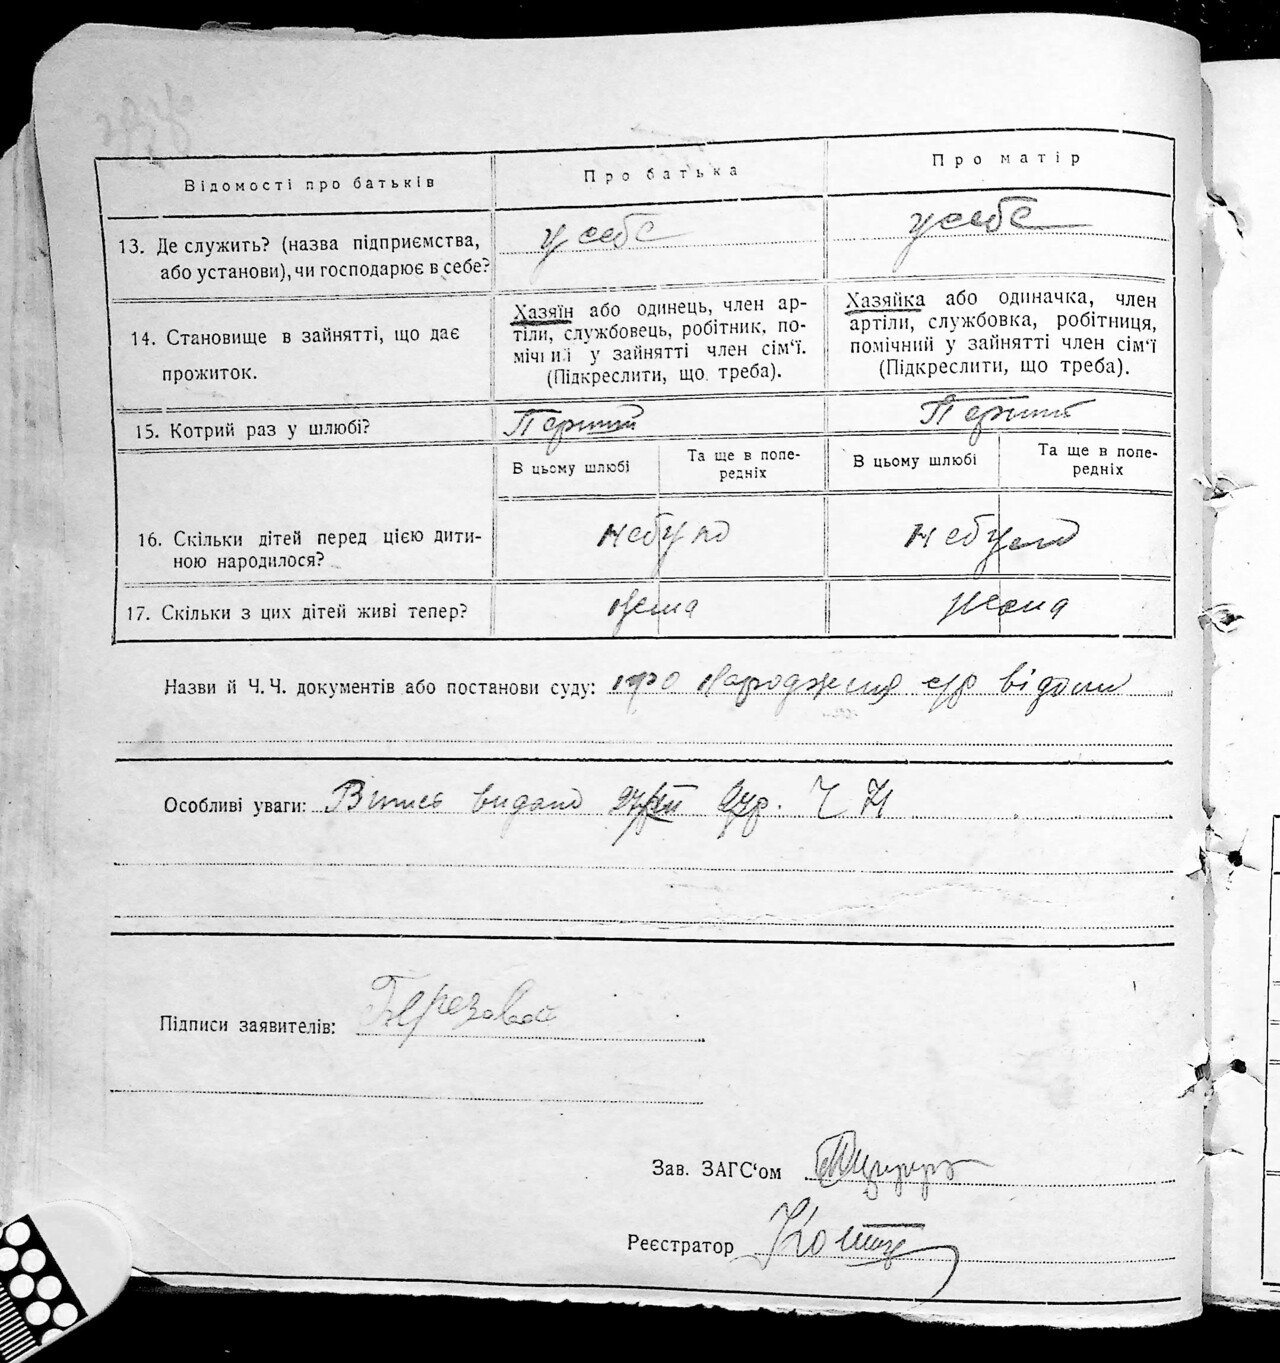 Відомості про батьків
Про батька
Про матір
13. Де служить? (назва підприємства,
або установи), чи господарює в себе?
у себе
у себе
14. Становище в зайнятті, що дає
прожиток.
Хазяїн або одинець, член ар-
тіли, службовець, робітник, по-
мічний у зайнятті член сім'ї.
(Підкреслити, що треба).
Хазяйка або одиначка, член
артіли, службовка, робітниця,
помічний у зайнятті член сім'ї
(Підкреслити, що треба).
15. Котрий раз у шлюбі?
Перший
Перший
В цьому шлюбі
Та ще в попе-
редніх
В цьому шлюбі
Та ще в попе-
редніх
16. Скільки дітей перед цією дити-
ною народилося?
небуло
небуло
17. Скільки з цих дітей живі тепер?
нема
нема
Назви й Ч. Ч. документів або постанови суду: про народження відом
Особливі уваги: Випис видано Ч 71
Підписи заявителів:
Зав. ЗАГС'ом
Реєстратор